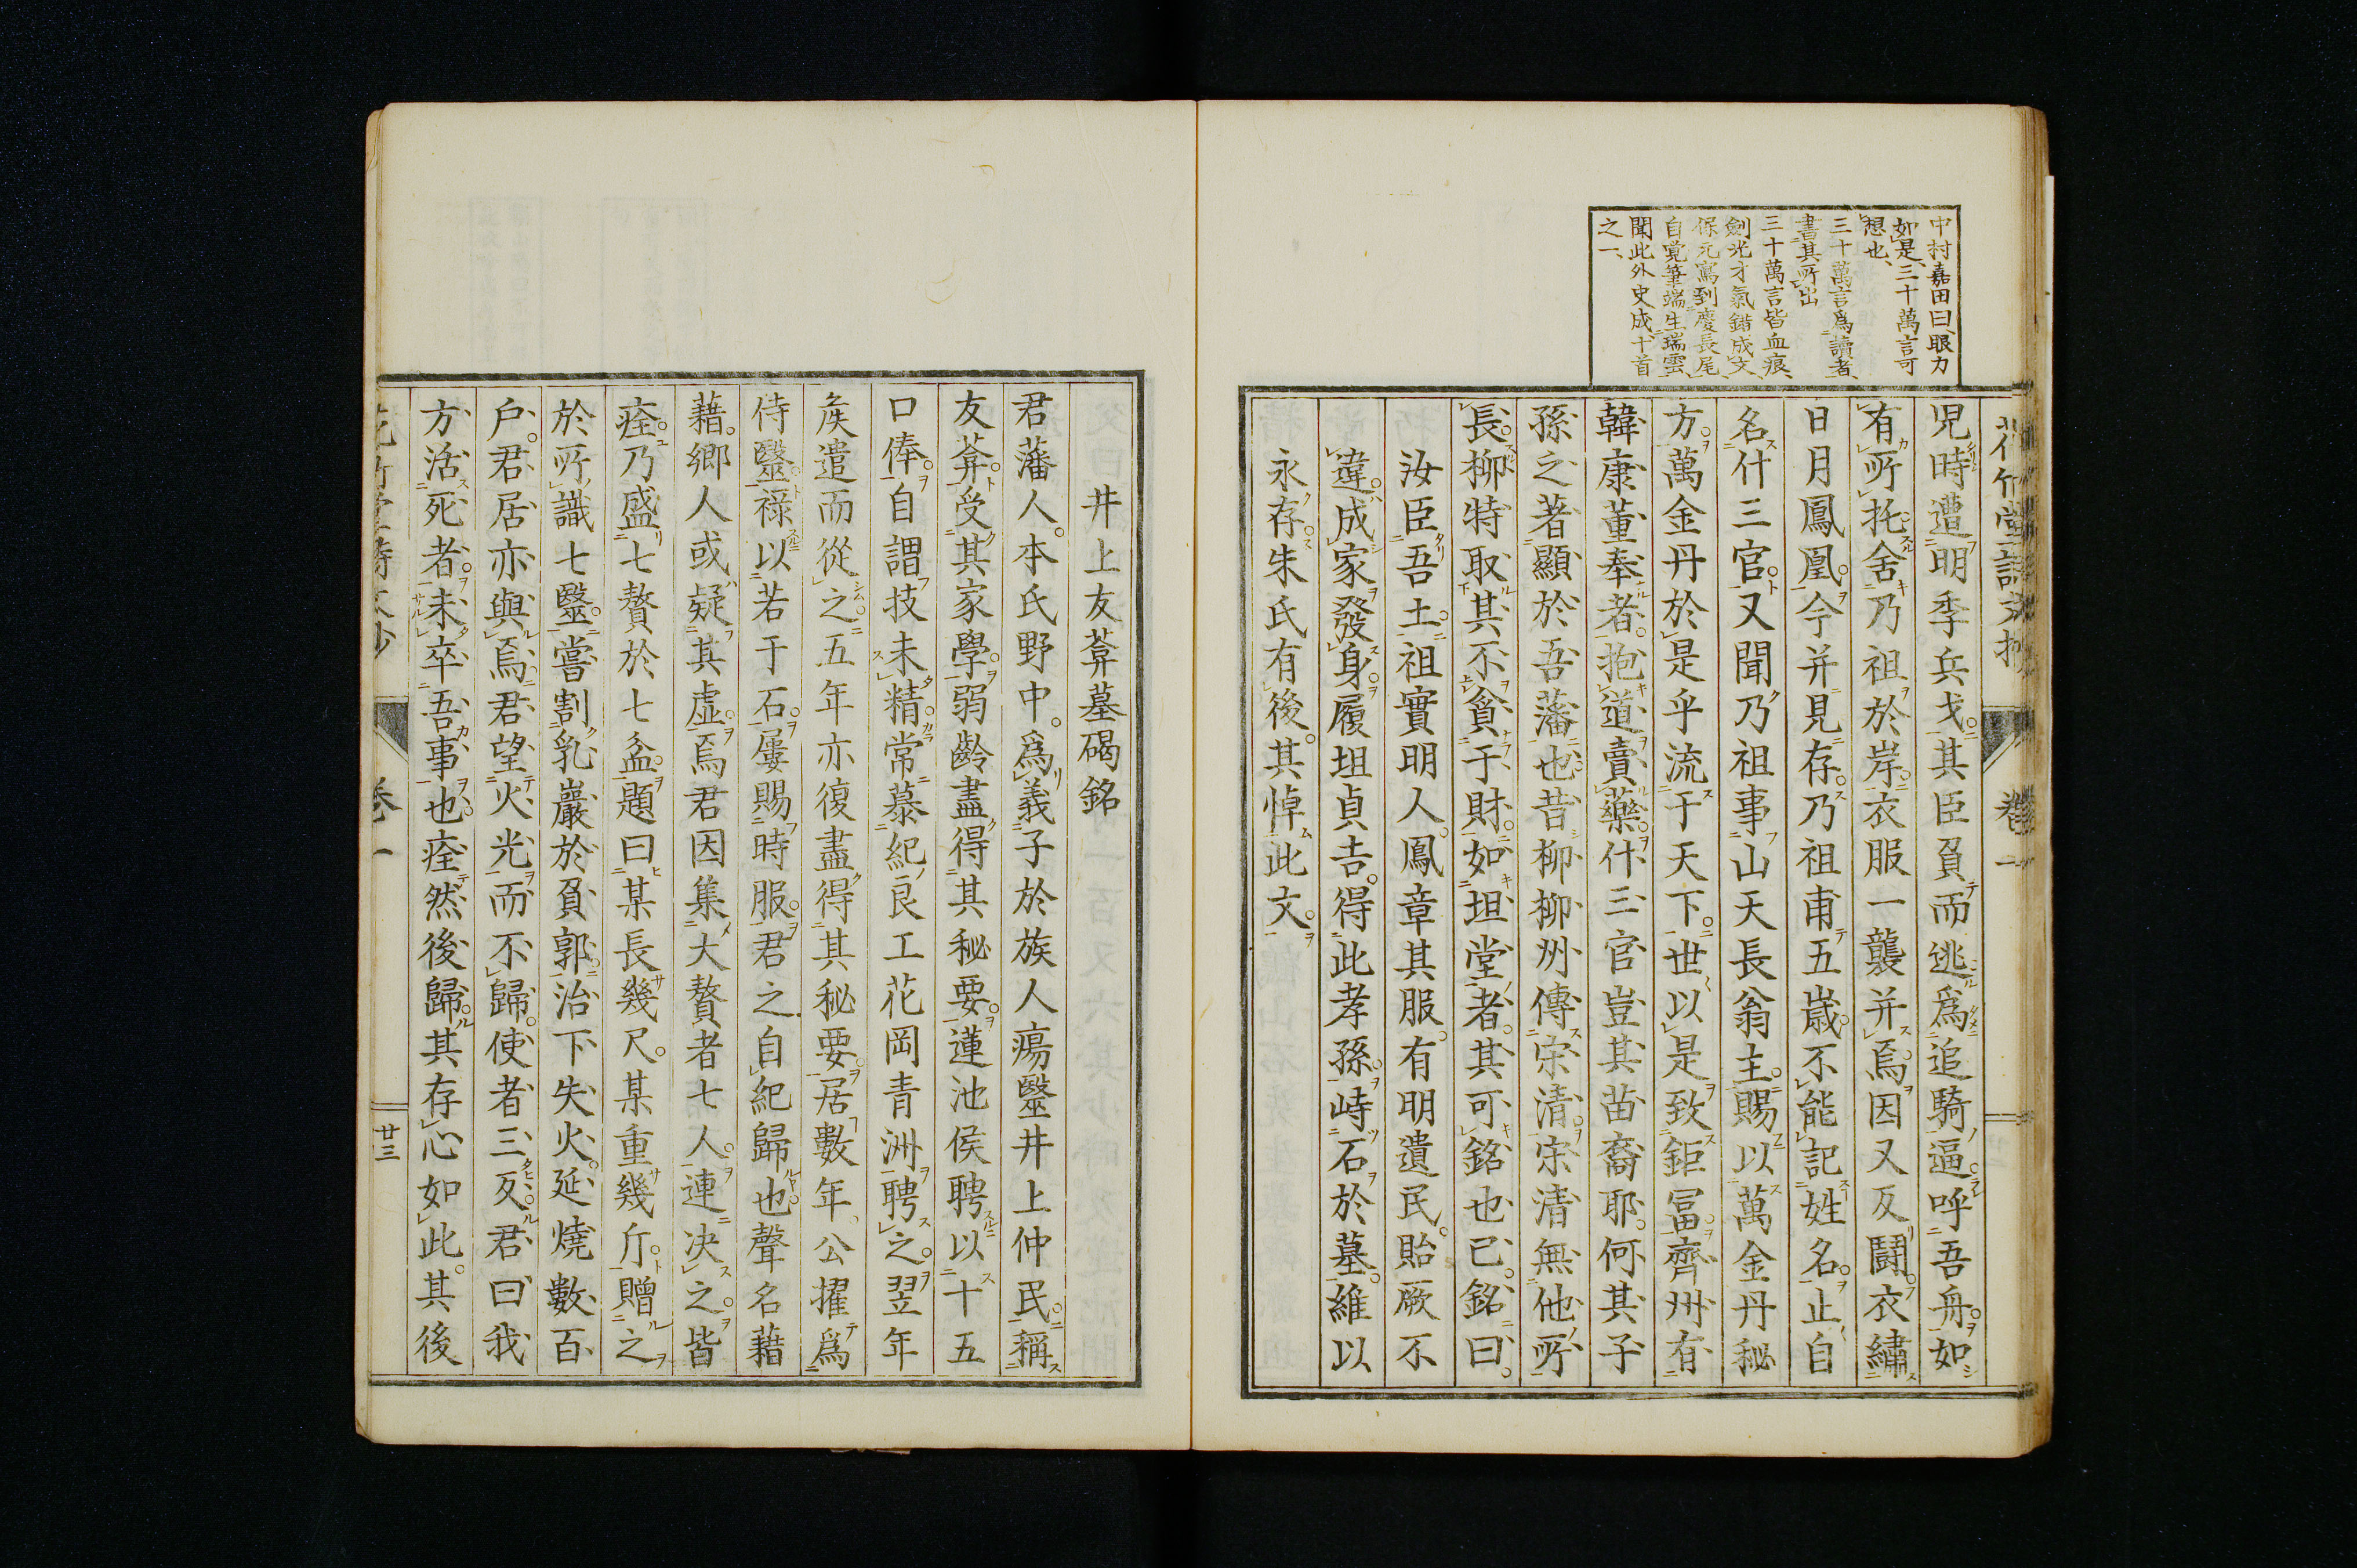 中村嘉田曰眼力
如是三十萬言可
想也
三十萬言爲讀者
書其所出
三十萬言皆血痕
劍光才氣錯成文
保元寫到慶長尾
自覺筆端生瑞雲
聞此外史成十首
之一
兒時遭明季兵戈其臣負而逃爲追騎逼呼吾舟如
有所托舍乃祖於岸衣服一襲并焉因又反鬪衣繡
日月鳳凰今并見存乃祖甫五歲不能記姓名止自
名什三官又聞乃祖事山天長翁主賜以萬金丹秘
方萬金丹於是乎流于天下世以是致鉅冨齊州有
韓康董奉者抱道賣藥什三官豈其苗裔耶何其子
孫之著顯於吾藩也昔柳柳州傳宋清宋清無他所
長柳特取其不貪于財如坦堂者其可銘也已銘曰
汝臣吾土祖實明人鳳章其服有明遺民貽厥不
違成家發身履坦貞吉得此孝孫峙石於墓維以
永存朱氏有後其悼此文
卷一
井上友葊墓碣銘
君藩人本氏野中爲義子於族人瘍毉井上仲民稱
友葊受其家學弱齡盡得其秘要蓮池侯聘以十五
口俸自謂技未精常慕紀良工花岡青洲聘之翌年
矦遣而從之五年亦復盡得其秘要居數年公擢爲
侍毉祿以若于石屢賜時服君之自紀歸也聲名藉
藉鄉人或疑其虛焉君因集大贅者七人連决之皆
痊乃盛七贅於七盆題曰某長幾尺某重幾斤贈之
於所識七毉嘗割乳巖於負郭治下失火延燒數百
户君居亦與焉君望火光而不歸使者三反君曰我
方活死者未卒吾事也痊然後歸其存心如此其後
卷一
廿三